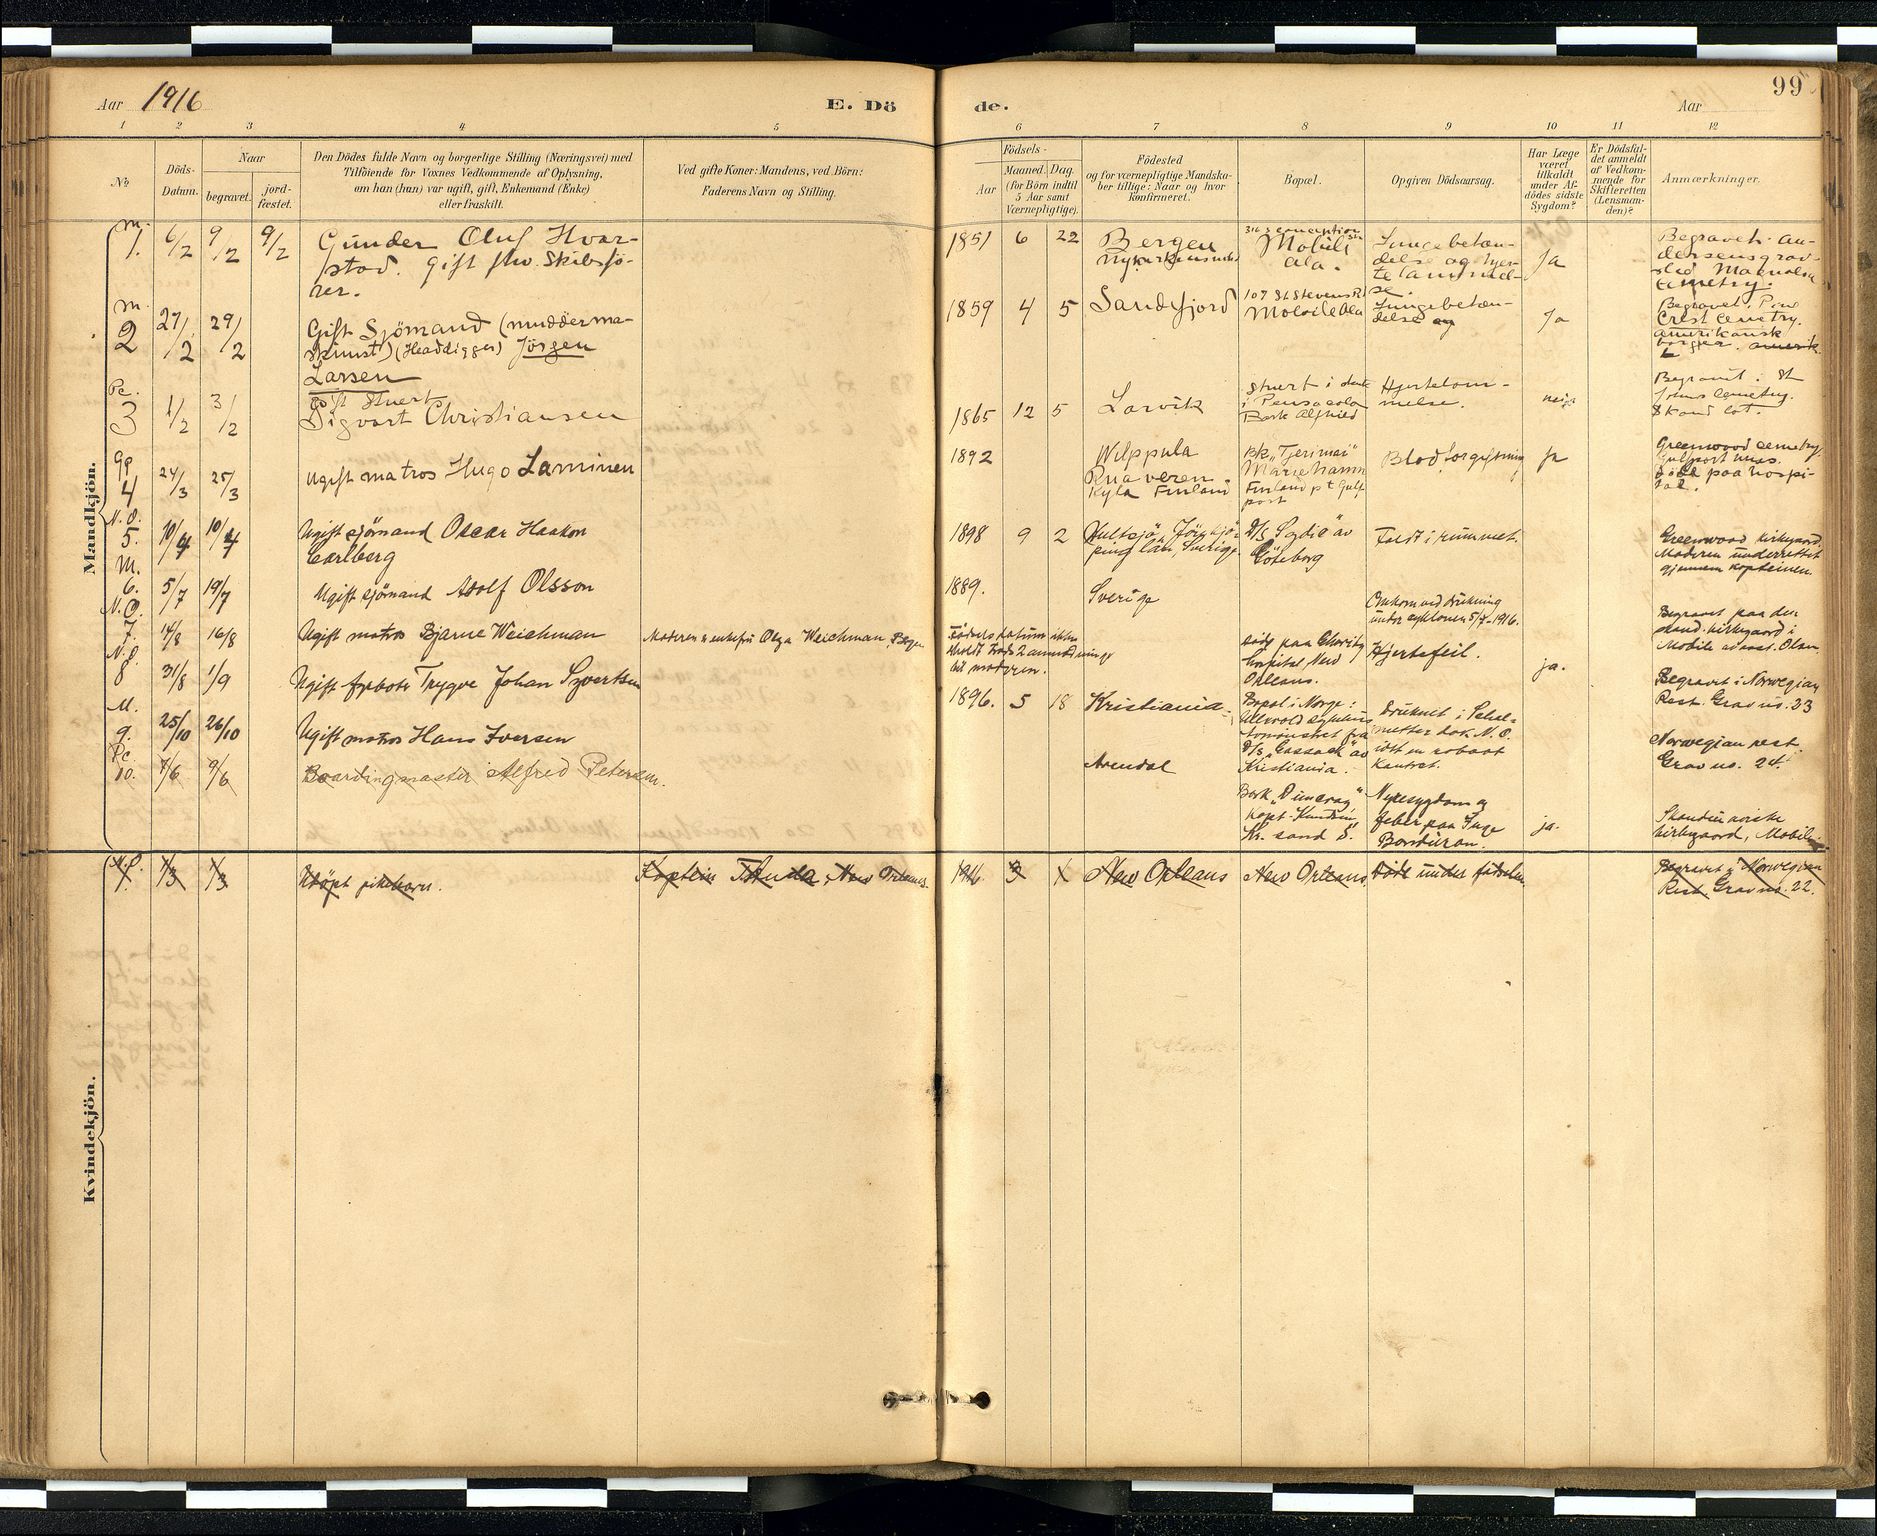 Aar 1916
E. Dö
de.
99
Aar
1 2 3 4 5 6 7 8 9 10 11 12
No.
Döds-
Datum.
Naar
begravet.
jord-
fæstet.
Den Dödes fulde Navn og borgerlige Stilling (Næringsvei) med
Tilföiende for Voxnes Vedkommende af Oplysning,
om han (hun) var ugift, gift, Enkemand (Enke)
eller fraskilt.
Ved gifte Koner: Mandens, ved Börn:
Faderens Navn og Stilling.
Födsels-
Aar
Maaned. Dag.
(for Börn indtil
5 Aar samt
Værnepligtige).
Födested
og for værnepligtige Mandska-
ber tillige: Naar og hvor
konfirmeret.
Bopæl.
Opgiven Dödsaarsag.
Har Læge
været
tilkaldt
under Af-
dödes sidste
Sygdom?
Er Dödsfal-
det anmeldt
af Vedkom-
mende for
Skifteretten
(Lensman-
den)?
Anmærkninger.
Mandkjön.
M.
1. 6/2 9/2 9/2
Gunder Oluf Hvar-
stad. Gift fhv. Skibsfö-
rer.
1851 6 22
Bergen
Nykirkens
Conception
Mobile
Ala.
Lungebetæn-
delse og hjer-
telammel-
se.
Ja
Begravet. An-
dersens grav-
sted Magnolia
Cemetry.
M.
2 27/2 29/2
Gift Sjömand (mudderma-
skinist) (Headdigger) Jörgen
Larsen
1859 4 5
Sandefjord
107 St Stevens Rd
Mobile Ala
Lungebetæn-
delse og
Ja
Begravet. Pine
Crest Cemetry.
Amerikansk
borger. Amerik.
Pc.
3 1/2 3/2
Gift Stuert
Sigvart Christiansen
1865 12 5
Larvik
Stuert i
i Pensacola
Bark Alfhild
Hjertelam-
melse.
nei
Begravet. St
Johns Cemetry.
Skand lot.
Gp
4 24/3 25/3
Ugift matros Hugo Laminen
1892
Wilppula
Ruaveren
Kyla Finland
Bk. "Fjerimai"
Mariehamn
Finland pt Gulf
port
Blodforgiftning
Ja
Greenwood Cemetry
Gulfport Miss.
Döde paa hospi-
tal.
N.O.
5. 10/4 10/4
Ugift sjömand Oscar Haakon
Carlberg
1898 9 2
Hultsjö, Jönkjö-
pings län, Sverige
D/S "Sydic" av
Göteborg
Faldt i rummet.
Greenwood kirkegaard.
Moderen underrettet
gjennem kapteinen.
M.
6. 5/7 19/7
Ugift sjömand Adolf Olsson
1889.
Sverige
Omkom ved drukning
under cyklonen 5/7-1916.
Begravet paa den
skand. kirkegaard i
Mobile av ass. Olsen
N.O.
7. 14/8 16/8
Ugift matros Bjarne Weichman
Moderen er enkefru Olga Weichman, Bergen
Födselsdatum ikke
erholdt trods 2 anmodninger
til moderen.
Döde paa Charity
hospital New
Orleans.
Hjertefeil.
ja.
Begravet i Norwegian
Rest. Grav no. 23
N.O.
8 31/8 1/9
Ugift fyrböter Trygve Johan Syvertsen
1896. 5 18
Kristiania
Bopæl i Norge:
Ullevold sykehus
fra
D/S "Cossack" av
Kristiania.
Druknet i
N.O.
idet en robaat
kantret.
Norwegian rest.
Grav no. 24.
M.
9. 25/10 26/10
Ugift matros Hans Iversen
Arendal
Bark "Duncrag"
kapt.
Kr. sand S.
Nyresygdom og
feber paa turen
Honduran.
ja.
Skandinaviske
kirkegaard, Mobile.
Pc
10. 7/6 9/6
Boardingmaster Alfred Petersen.
Kvindekjön.
N.O.
1. 1/3 1/3
Udöpt pikebarn.
Kaptein New Orleans
1916 3 1
New Orleans
New Orleans
Döde under födselen
Begravet i Norwegian
Rest. Grav no. 22.